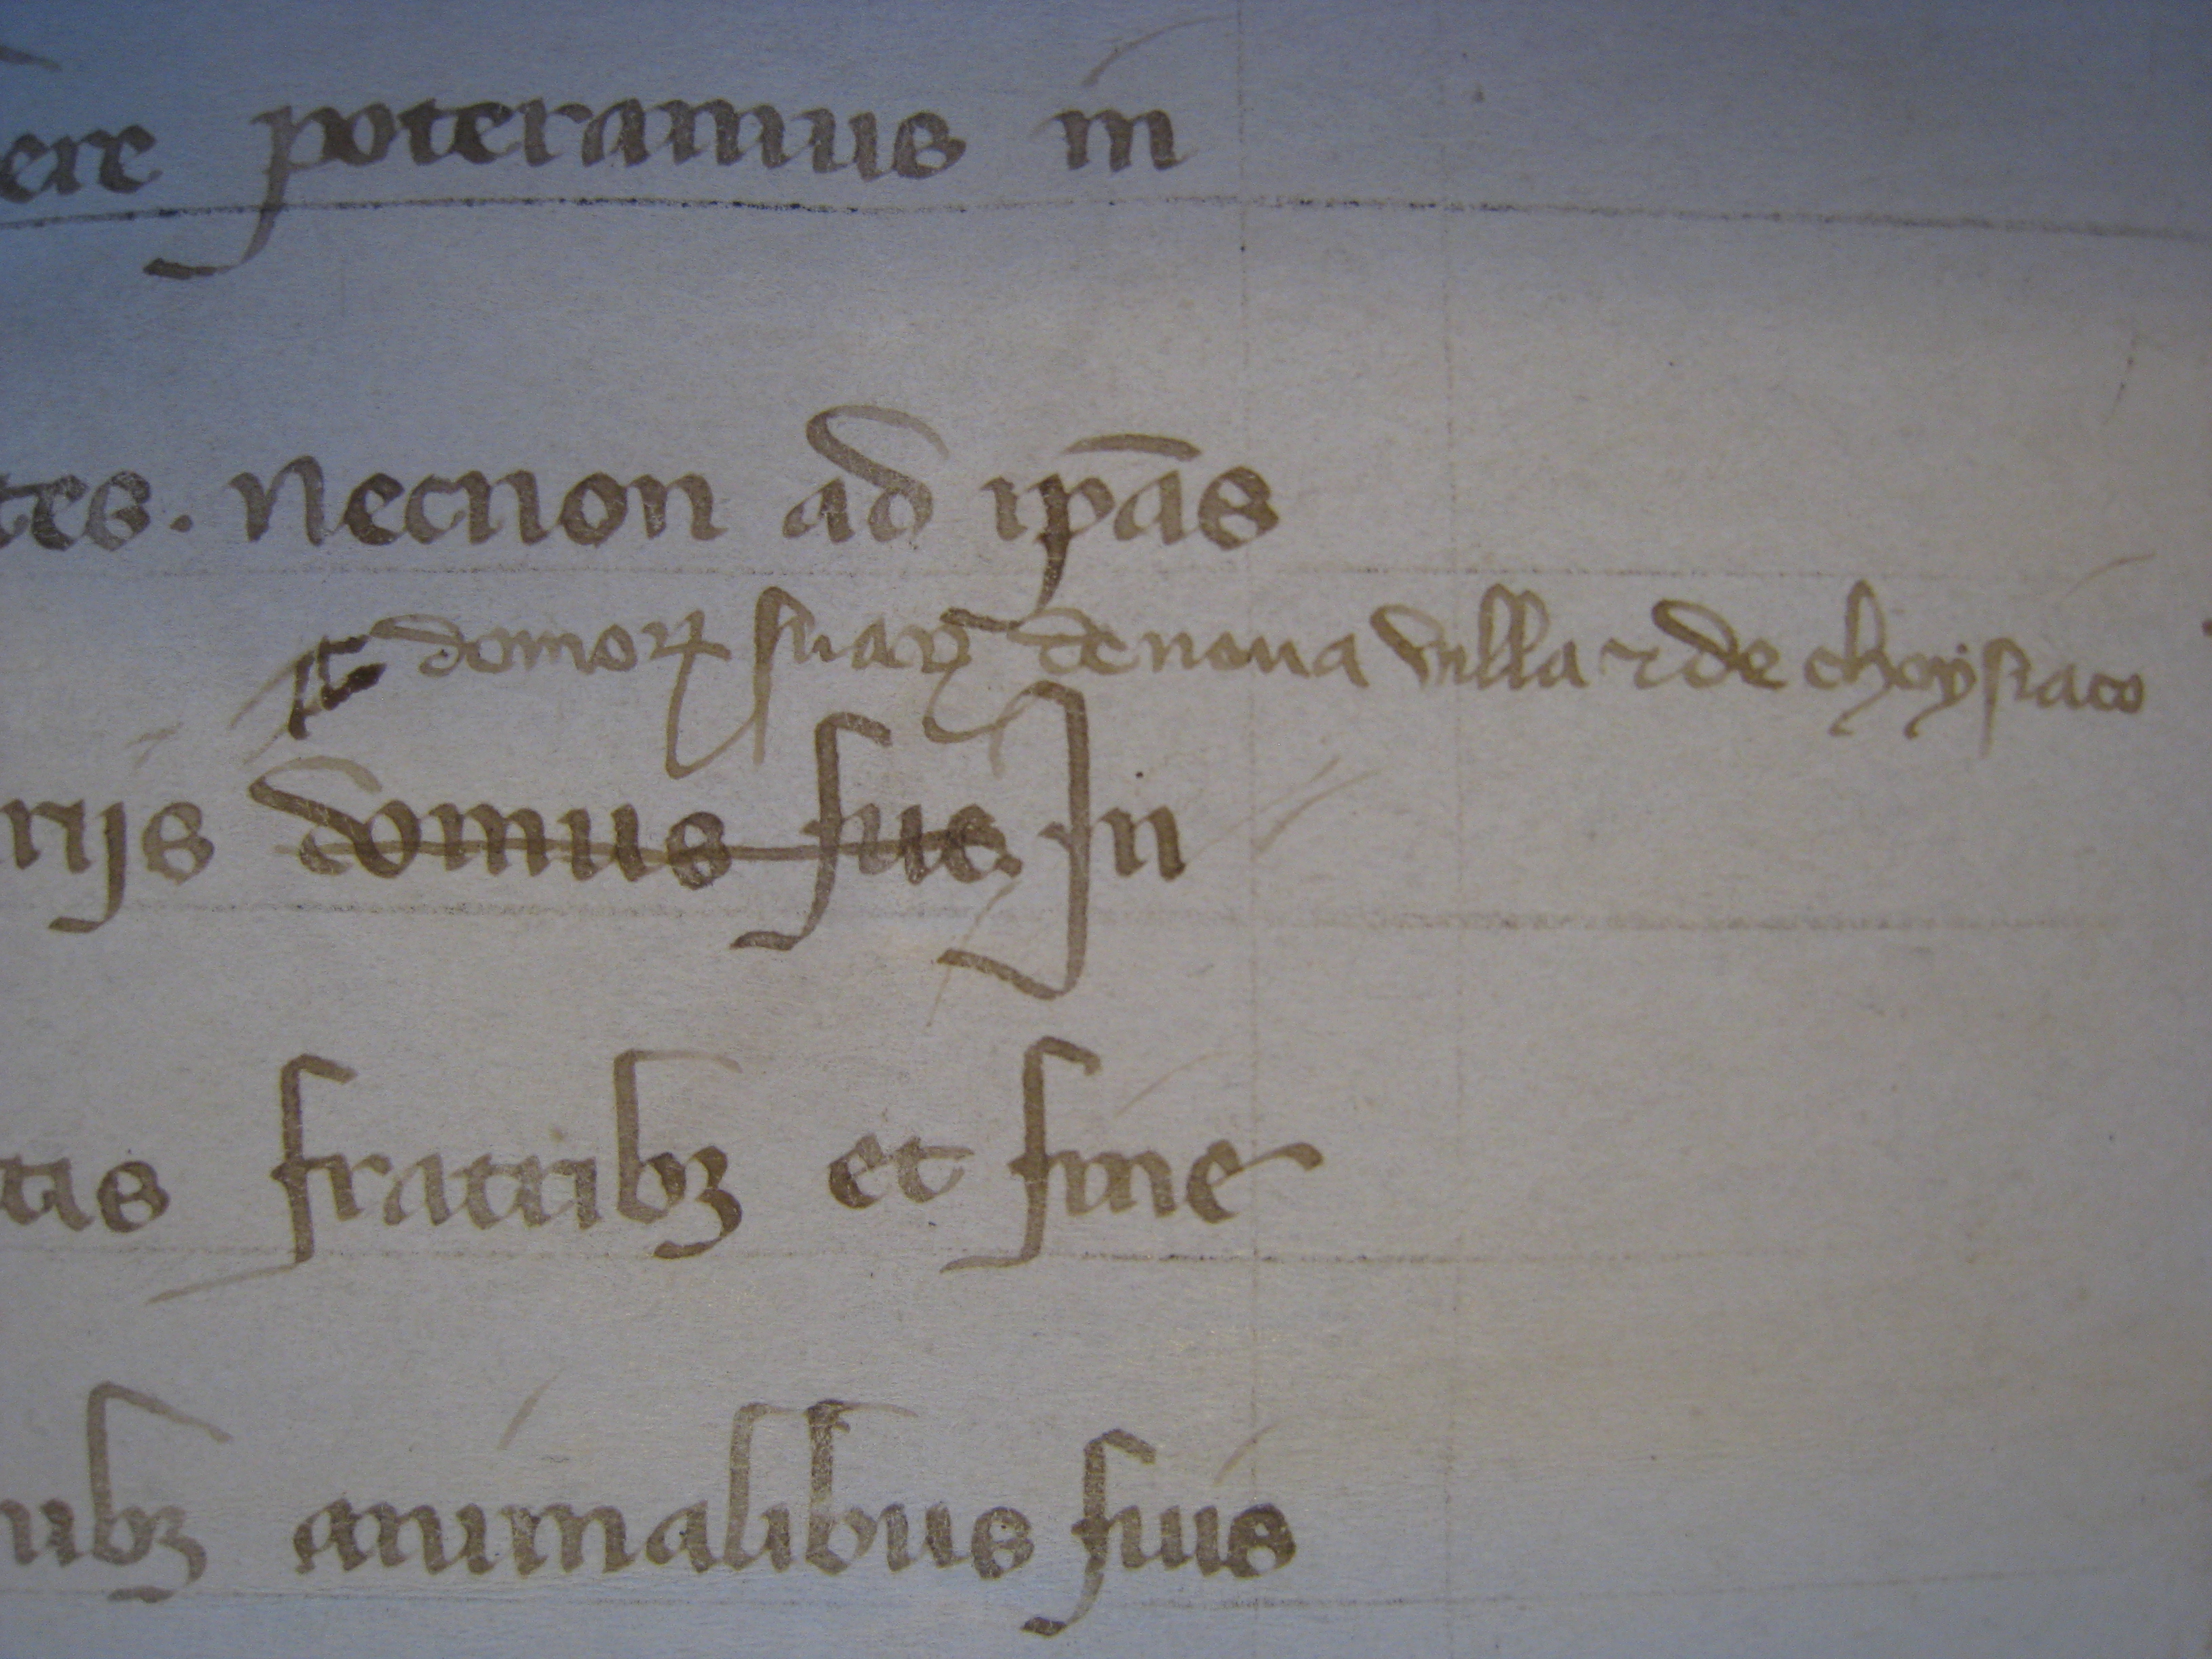 ere poteramus in
tes. Necnon ad ip̄as
domoꝝ suaꝝ de noua villa ⁊ de choysiaco
rijs domus sue. In
tis fratribꝫ et sine
nibꝫ animalibus suis